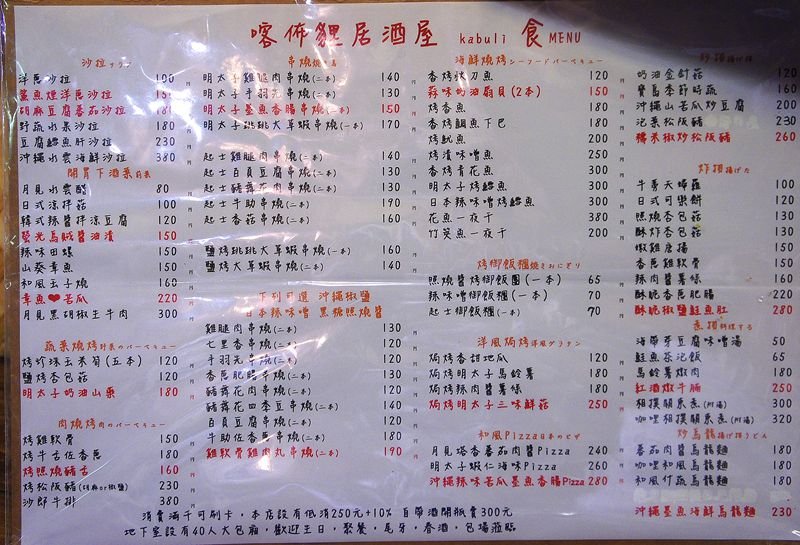 喀佈貍居酒屋 kabuli 食MENU
沙拉サラダ
洋芭沙拉 100
鮭魚煙洋芭沙拉 150
胡麻豆腐蕃茄沙拉 180
野蔬水果沙拉 180
豆腐鱈魚肝沙拉 230
沖繩水雲海鮮沙拉 380
開胃下酒菜前菜
月見水雲醋 80
日式涼拌菇 100
韓式辣醬拌涼豆腐 120
螢光烏賊醬油漬 150
辣味田螺 150
山葵章魚 150
和風玉子燒 160
章魚❤苦瓜 220
月見黑胡椒生牛肉 300
蔬菜燒烤野菜のバーベキュー
烤珍珠玉米筍(五本) 120
鹽烤杏包菇 120
明太子奶油山藥 180
肉燒烤肉のバーベキュー
烤雞軟骨 150
烤牛舌佐香蔥 180
烤照燒豬舌 160
烤松阪豬(胡麻or椒鹽 230
沙朗牛排 380
串燒
明太子雞腿肉串燒(二本) 140
明太子手羽先串燒(二本) 130
明太子墨魚香腸串燒(二本) 150
明太子跳跳大草蝦串燒(一本) 170
起士雞腿肉串燒(二本) 140
起士百頁豆腐串燒(二本) 130
起士豬五花肉串燒(二本) 140
起士牛肋串燒(二本) 190
起士香菇串燒(二本) 160
鹽烤跳跳大草蝦串燒(一本) 160
鹽烤大草蝦串燒(二本) 140
下列可選 沖繩椒鹽
日本辣味噌 黑糖照燒醬
雞腿肉串燒(二本) 130
七里香串燒(二本) 120
手羽先串燒(二本) 120
香蔥肥腸串燒(二本) 130
豬五花肉串燒(二本) 120
豬五花四季豆串燒(二本) 140
百頁豆腐串燒(二本) 120
牛肋佐香蔥串燒(二本) 180
雞軟骨雞肉丸串燒(二本) 190
海鮮燒烤シーフードバーベキュー
香烤秋刀魚 120
蒜味奶油扇貝(2本) 150
烤香魚 180
香烤鯛魚下巴 180
烤魷魚 200
烤漬味噌魚 250
香烤青花魚 300
明太子烤鱈魚 300
日本辣味噌烤鱈魚 300
花魚一夜干 380
竹筴魚一夜干 200
烤御飯糰焼きおにぎり
照燒醬烤御飯糰(一本) 65
辣味噌御飯糰(一本) 70
起士御飯糰(一本) 70
洋風焗烤洋風グラタン
焗烤香甜地瓜 120
焗烤明太子馬鈴薯 180
焗烤辣肉醬薯條 180
焗烤明太子三味鮮菇 250
和風Pizza日本のピザ
月見塔香蕃茄肉醬Pizza 240
明太子蝦仁海味Pizza 260
沖繩辣味苦瓜墨魚香腸Pizza 280
奶油金針菇 120
寶島季節時蔬 160
沖繩山苦瓜炒豆腐 200
泡菜松阪豬 230
糯米椒炒松阪豬 260
炸類揚げた
牛蒡天婦羅 100
日式可樂餅 120
照燒杏包菇 130
酥炸杏包菇 130
嫩雞唐揚 150
香蔥雞軟骨 150
辣肉醬薯條 160
酥脆香蔥肥腸 220
酥脆椒鹽鮭魚肚 280
煮類料理する
海帶芽豆腐味噌湯 50
鮭魚茶泡飯 65
馬鈴薯燉肉 180
紅酒燉牛腩 250
相撲關東煮(附湯) 300
咖哩相撲關東煮(附湯) 320
炒烏龍揚げ掛うどん
蕃茄肉醬烏龍麵 180
咖哩和風烏龍麵 180
和風什蔬烏龍麵 180
沖繩墨魚海鮮烏龍麵 230
消費滿千可刷卡,本店設有低消250元+10% 自帶酒開瓶費300元
地下室設有40人大包廂,歡迎生日,聚餐,尾牙,春酒,包場蒞臨